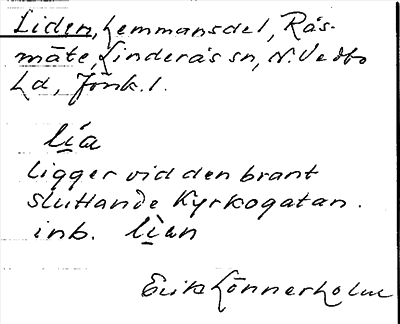 Liden, Hemmansdel, Rås-
måte, Linderås sn, N. Vedbo
hd, Jönk. l.
lía
ligger vid den brant
sluttande Kyrkogatan.
inb. lìan
Erik Lönnerholm